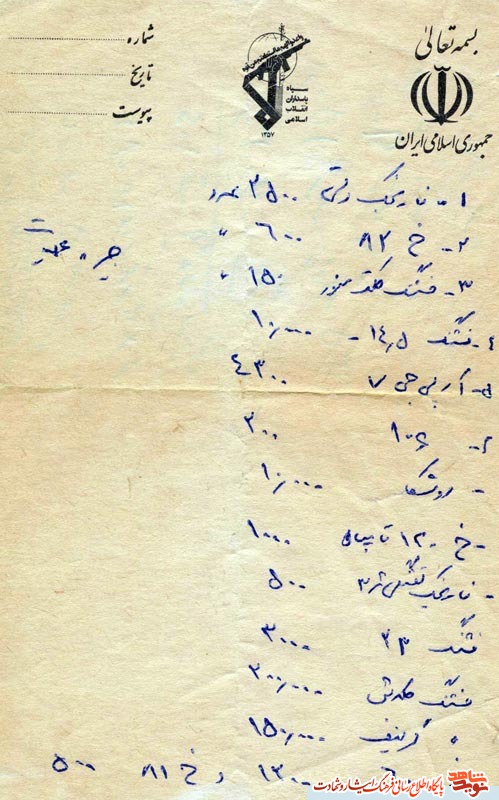 بسمه تعالی
جمهوری اسلامی ایران
سپاه
پاسداران
انقلاب
اسلامی
۱۳۵۷
شماره
تاریخ
پیوست
۱- نارنجک دستی ۳۵۰۰ عدد
۲- خ ۸۲ ۶۰۰ "
۳- فشنگ منور ۱۵۰ "
۴- فشنگ ۱۴٫۵ - ۱۰٫۰۰۰
۵- آر پی جی ۷ ۴۳۰۰
۶- ۱۰۶ ۳۰۰
- دوشکا ۱۰٫۰۰۰
- خ ۱۲۰ تا ۱۰۰۰
- نارنجک تفنگی ژ ۳ ۵۰۰
فشنگ ۲۳ ۳۰۰۰
فشنگ کلاش ۳۰۰٫۰۰۰
" گرینف ۱۵۰٫۰۰۰
۶۰ ۱۳۰۰ و خ ۸۱ ۵۰۰
نوید شاهد
پایگاه اطلاع رسانی فرهنگ ایثار و شهادت